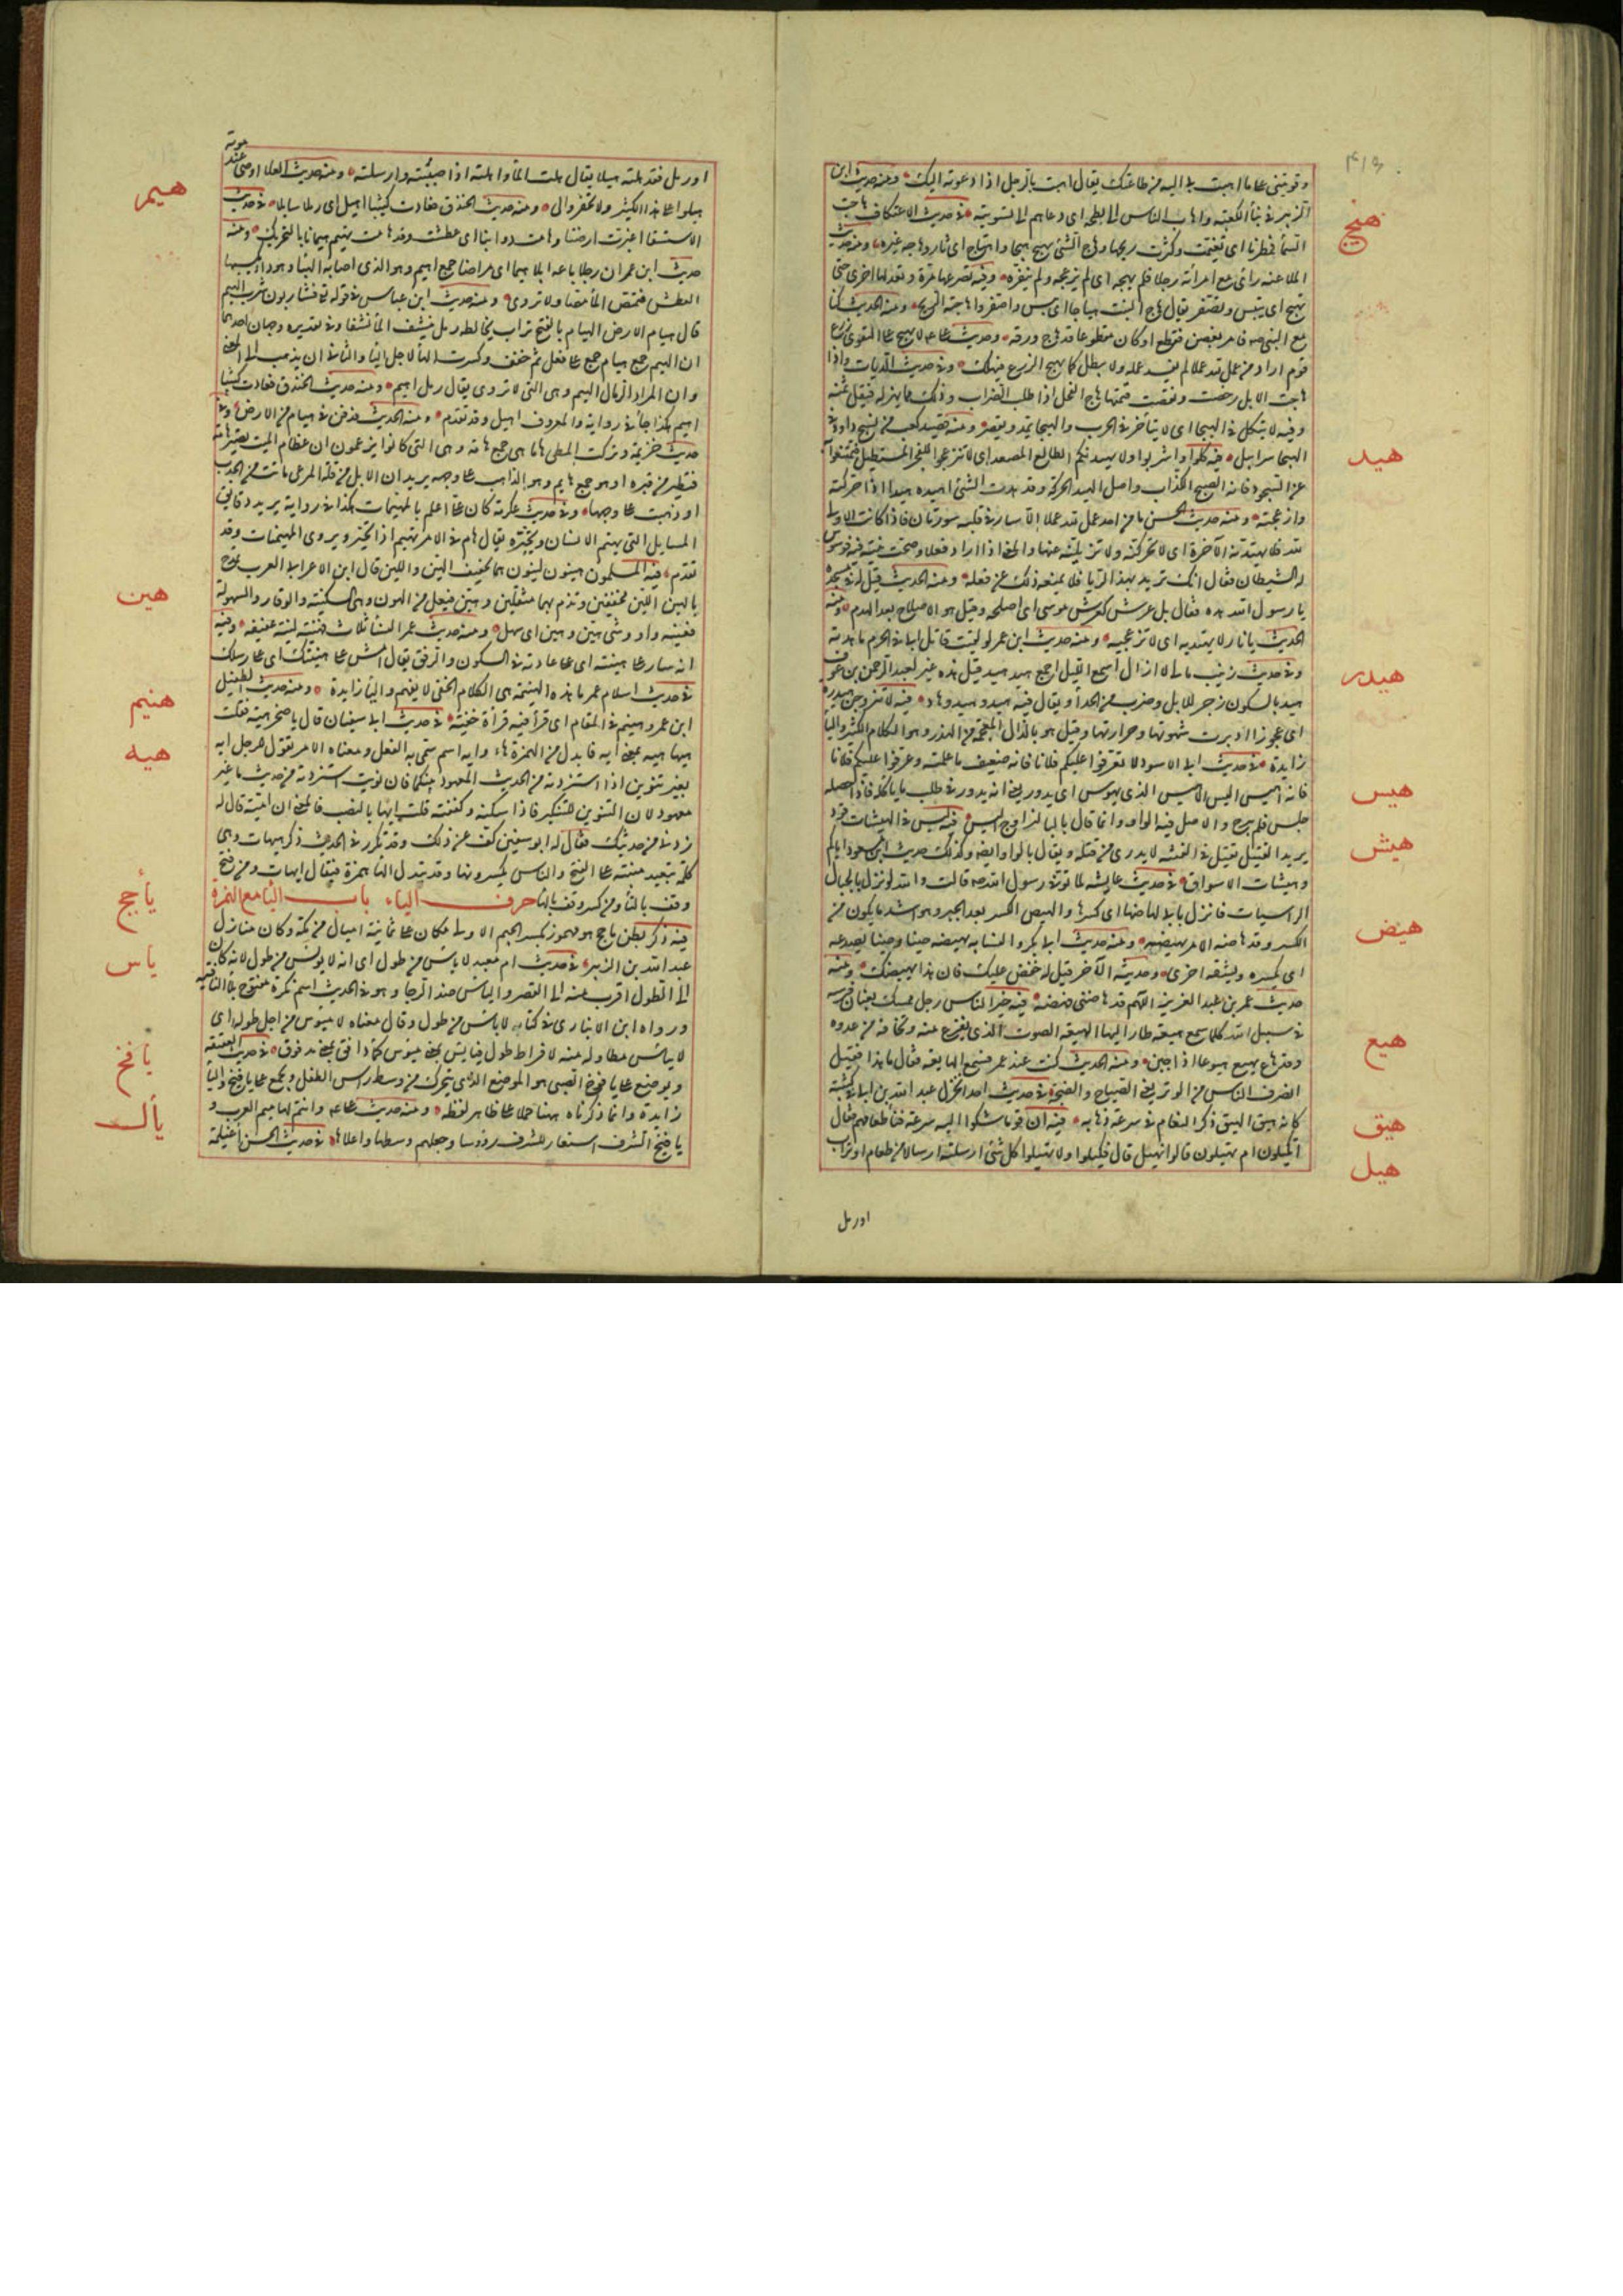 ٤١٣
وقويتني على ما اهبت بي اليه من طاعتك يقال اهبت بالرجل اذا دعوته اليك ومنه حديث ابن
الزبير في بناء الكعبة واهاب الناس الى بطحه اى دعاهم الى تسويته في حديث الاعتكاف هاجت
هيج
السما فمطرنا اى تغيمت وكثرت ريحها وهاج الشئ يهيج هيجا واهتاج اى ثار وهاجه غيره ومنه حديث
الملاعنة رأى مع امرأته رجلا فلم يهجه اى لم يزعجه ولم ينفره وفيه تصرعها مرة وتعدلها اخرى حتى
تهيج اى تيبس وتصفر يقال هاج النبت هياجا اى يبس واصفر واهاجته الريح ومنه الحديث كنا
مع النبي صه فامر بغصن فقطع او كان مقطوعا قد هاج ورقه وحديث على لا يهيج على التقوى زرع
قوم اراد من عمل لله عملا لم يفسد عمله ولا يبطل كما يهيج الزرع فيهلك وفي حديث الديات واذا
هاجت الابل رخصت ونقصت قيمتها هاج الفحل اذا طلب الضراب وذلك مما يهزله فيقل ثمنه
وفيه لا ينكل في الهيجا اى لا يتأخر في الحرب والهيجا يمد ويقصر ومنه قصيد كعب من نسج داود في
هيد
الهيجا سرابيل فيه كلوا واشربوا ولا يهيدنكم الطالع المصعد اى لا تنزعجوا للفجر المستطيل فتمتنعوا
عن السحور فانه الصبح الكذاب واصل الهيد الحركة وقد هدت الشئ اهيده هيدا اذا حركته
وازعجته ومنه حديث الحسن ما من احد عمل لله عملا الا سار في قلبه سورتان فاذا كانت الاولى
لله فلا يهيدنه الآخرة اى لا تحركنه ولا تزيلنه عنها والمعنى اذا اراد فعلا وصحت نيته فيه فوسوس
له الشيطان فقال انك تريد بهذا الريا فلا يمنعه ذلك عن فعله ومنه الحديث قيل له في مسجده
يا رسول الله هده فقال بل عرش كعرش موسى اى اصلحه وقيل هو الاصلاح بعد الهدم ومنه
الحديث يا نار لا تهيديه اى لا تزعجيه ومنه حديث ابن عمر لو لقيت قاتل ابى في الحرم ما هدته
هيدر
وفي حديث زينب مالى لا ازال اسمع الليل اجمع هيد هيد قيل هذه عير لعبد الرحمن بن عوف
هيد بالسكون زجر للابل وضرب من الحداء ويقال فيه هيد وهيد وهاد فيه لا تتزوجن هيدرة
اى عجوزا ادبرت شهوتها وحرارتها وقيل هو بالذال المعجمة من الهذر وهو الكلام الكثير واليا
زايدة في حديث ابى الاسود لا تعرفوا عليكم فلانا فانه ضعيف ما علمته وعرفوا عليكم فلانا
هيس
فانه اهيس اليس الاهيس الذى يهوس اى يدور يعنى انه يدور في طلب ما ياكله فاذا حصله
جلس فلم يبرح والاصل فيه الواو وانما قال باليا ليزاوج اليس فيه ليس في الهيشات قود
هيش
يريد القتيل يقتل في الفتنة لا يدرى من قتله ويقال بالواو ايضا وكذلك حديث ابن مسعود اياكم
وهيشات الاسواق في حديث عايشه لما توفى رسول الله صه قالت والله لو نزل بالجبال
هيض
الراسيات ما نزل بابى لهاضها اى كسرها والهيض الكسر بعد الجبر وهو اشد ما يكون من
الكسر وقد هاضه الامر يهيضه ومنه حديث ابى بكر والنسابة يهيضه حينا وحينا يصدعه
اى يكسره ويشقه اخرى وحديثه الآخر قيل له خفض عليك فان هذا يهيضك ومنه
هيع
حديث عمر بن عبد العزيز اللهم قد هاضني فهضه فيه خير الناس رجل ممسك بعنان فرسه
في سبيل الله كلما سمع هيعة طار اليها الهيعة الصوت الذى يفزع منه وتخافه من عدوه
وقد هاع يهيع هيوعا اذا جبن ومنه الحديث كنت عند عمر فسمع الهايعة فقال ما هذا فقيل
هيق
انصرف الناس من الوتر يعنى الصياح والضجة في حديث احد انخزل عبد الله بن ابى في كتيبة
كانه هيق الهيق ذكر النعام في سرعة ذهابه فيه ان قوما شكوا اليه سرعة فناء طعامهم فقال
هيل
اتكيلون ام تهيلون قالوا نهيل قال فكيلوا ولا تهيلوا كل شئ ارسلته ارسالا من طعام او تراب
او رمل
او رمل فقد هلته هيلا يقال هلت الماء واهلته اذا صببته وارسلته ومنه حديث العلاء اوصى عند موته
هيلوا على هذا الكثيب ولا تحفروا لى ومنه حديث الخندق فعادت كثيبا اهيل اى رملا سايلا في حديث
هيم
الاستسقا اغبرت ارضنا وهامت دوابنا اى عطشت وقد هامت تهيم هيمانا بالتحريك ومنه
حديث ابن عمر ان رجلا باعه ابلا هيما اى مراضا جمع اهيم وهو الذى اصابه الهيام وهو داء يكسبها
العطش فتمتص الماء مصا ولا تروى ومنه حديث ابن عباس في قوله تع فشاربون شرب الهيم
قال هيام الارض الهيام بالفتح تراب يخالطه رمل ينشف الماء نشفا وفي تقديره وجهان احدهما
ان الهيم جمع هيام جمع على فعل ثم خفف وكسرت الهاء لاجل اليا والثاني ان يذهب الى المعنى
وان المراد الرمال الهيم وهي التي لا تروى يقال رمل اهيم ومنه حديث الخندق فعادت كثيبا
اهيم هكذا جاء في رواية والمعروف اهيل وقد تقدم ومنه الحديث فدفن في هيام من الارض وفي
حديث خزيمة وتركت المطى هاما هي جمع هامة وهي التي كانوا يزعمون ان عظام الميت تصير هامة
فتطير من قبره او هو جمع هايم وهو الذاهب على وجهه يريد ان الابل من قلة المرعى ماتت من الجدب
او ذهبت على وجهها وفي حديث عكرمة كان على اعلم بالمهيمات هكذا في رواية يريد دقايق
المسايل التي تهيم الانسان وتحيره يقال هام في الامر يهيم اذا تحير ويروى المهيمنات وقد
هين
تقدم فيه المسلمون هينون لينون هما تخفيف الهين واللين قال ابن الاعرابى العرب تمدح
بالهين اللين مخففين وتذم بهما مثقلين وهين فيعل من الهون وهي السكينة والوقار والسهولة
فعينه واو وشئ هين وهين اى سهل ومنه حديث عمر النساء ثلاث فهينة لينة عفيفة وفيه
انه سار على هينته اى على عادته في السكون والرفق يقال امش على هينتك اى على رسلك
هنيم
في حديث اسلام عمر ما هذه الهينمة هي الكلام الخفى لا يفهم واليا زايدة ومنه حديث الطفيل
ابن عمرو هينم في المقام اى قرأ فيه قرأة خفية في حديث ابى سفيان قال يا صخر هيه فقلت
هيه
هيها هيه بمعنى ايه فابدل من الهمزة هاء وايه اسم سمى به الفعل ومعناه الامر تقول للرجل ايه
بغير تنوين اذا استزدته من الحديث المعهود بينكما فان نونت استزدته من حديث ما غير
معهود لان التنوين للتنكير فاذا سكنته وكففته قلت ايها بالنصب فالمعنى ان امية قال له
زدني من حديثك فقال له ابو سفين كف عن ذلك وقد تكرر في الحديث ذكر هيهات وهي
كلمة تبعيد مبنية على الفتح والناس يكسرونها وقد تبدل الهاء همزة فيقال ايهات ومن فتح
وقف بالتاء ومن كسر وقف بالهاء حرف الياء باب اليا مع الهمزة
يأجج
فيه ذكر بطن ياجج هو مهموز بكسر الجيم الاولى مكان على ثمانية اميال من مكة وكان منازل
ياس
عبد الله بن الزبير في حديث ام معبد لا يأس من طول اى انه لا يؤيس من طوله لانه كان
الى الطول اقرب منه الى القصر واليأس ضد الرجا وهو في الحديث اسم نكرة مفتوح بلا النافية
ورواه ابن الانبارى في كتابه لا يائس من طول وقال معناه لا ميئوس من اجل طوله اى
يأفخ
لا يائس مطاوله منه لافراط طوله فيائس بمعنى ميئوس كماء دافق بمعنى مدفوق في حديث العقيقة
ويوضع على يافوخ الصبي هو الموضع الذى يتحرك من وسط راس الطفل ويجمع على يافيخ واليا
زايدة وانما ذكرناه ههنا حملا على ظاهر لفظه ومنه حديث على وانتم لهاميم العرب و
يأل
يافيخ الشرف استعار للشرف رؤوسا وجعلهم وسطها واعلاها في حديث الحسن اغيلمة